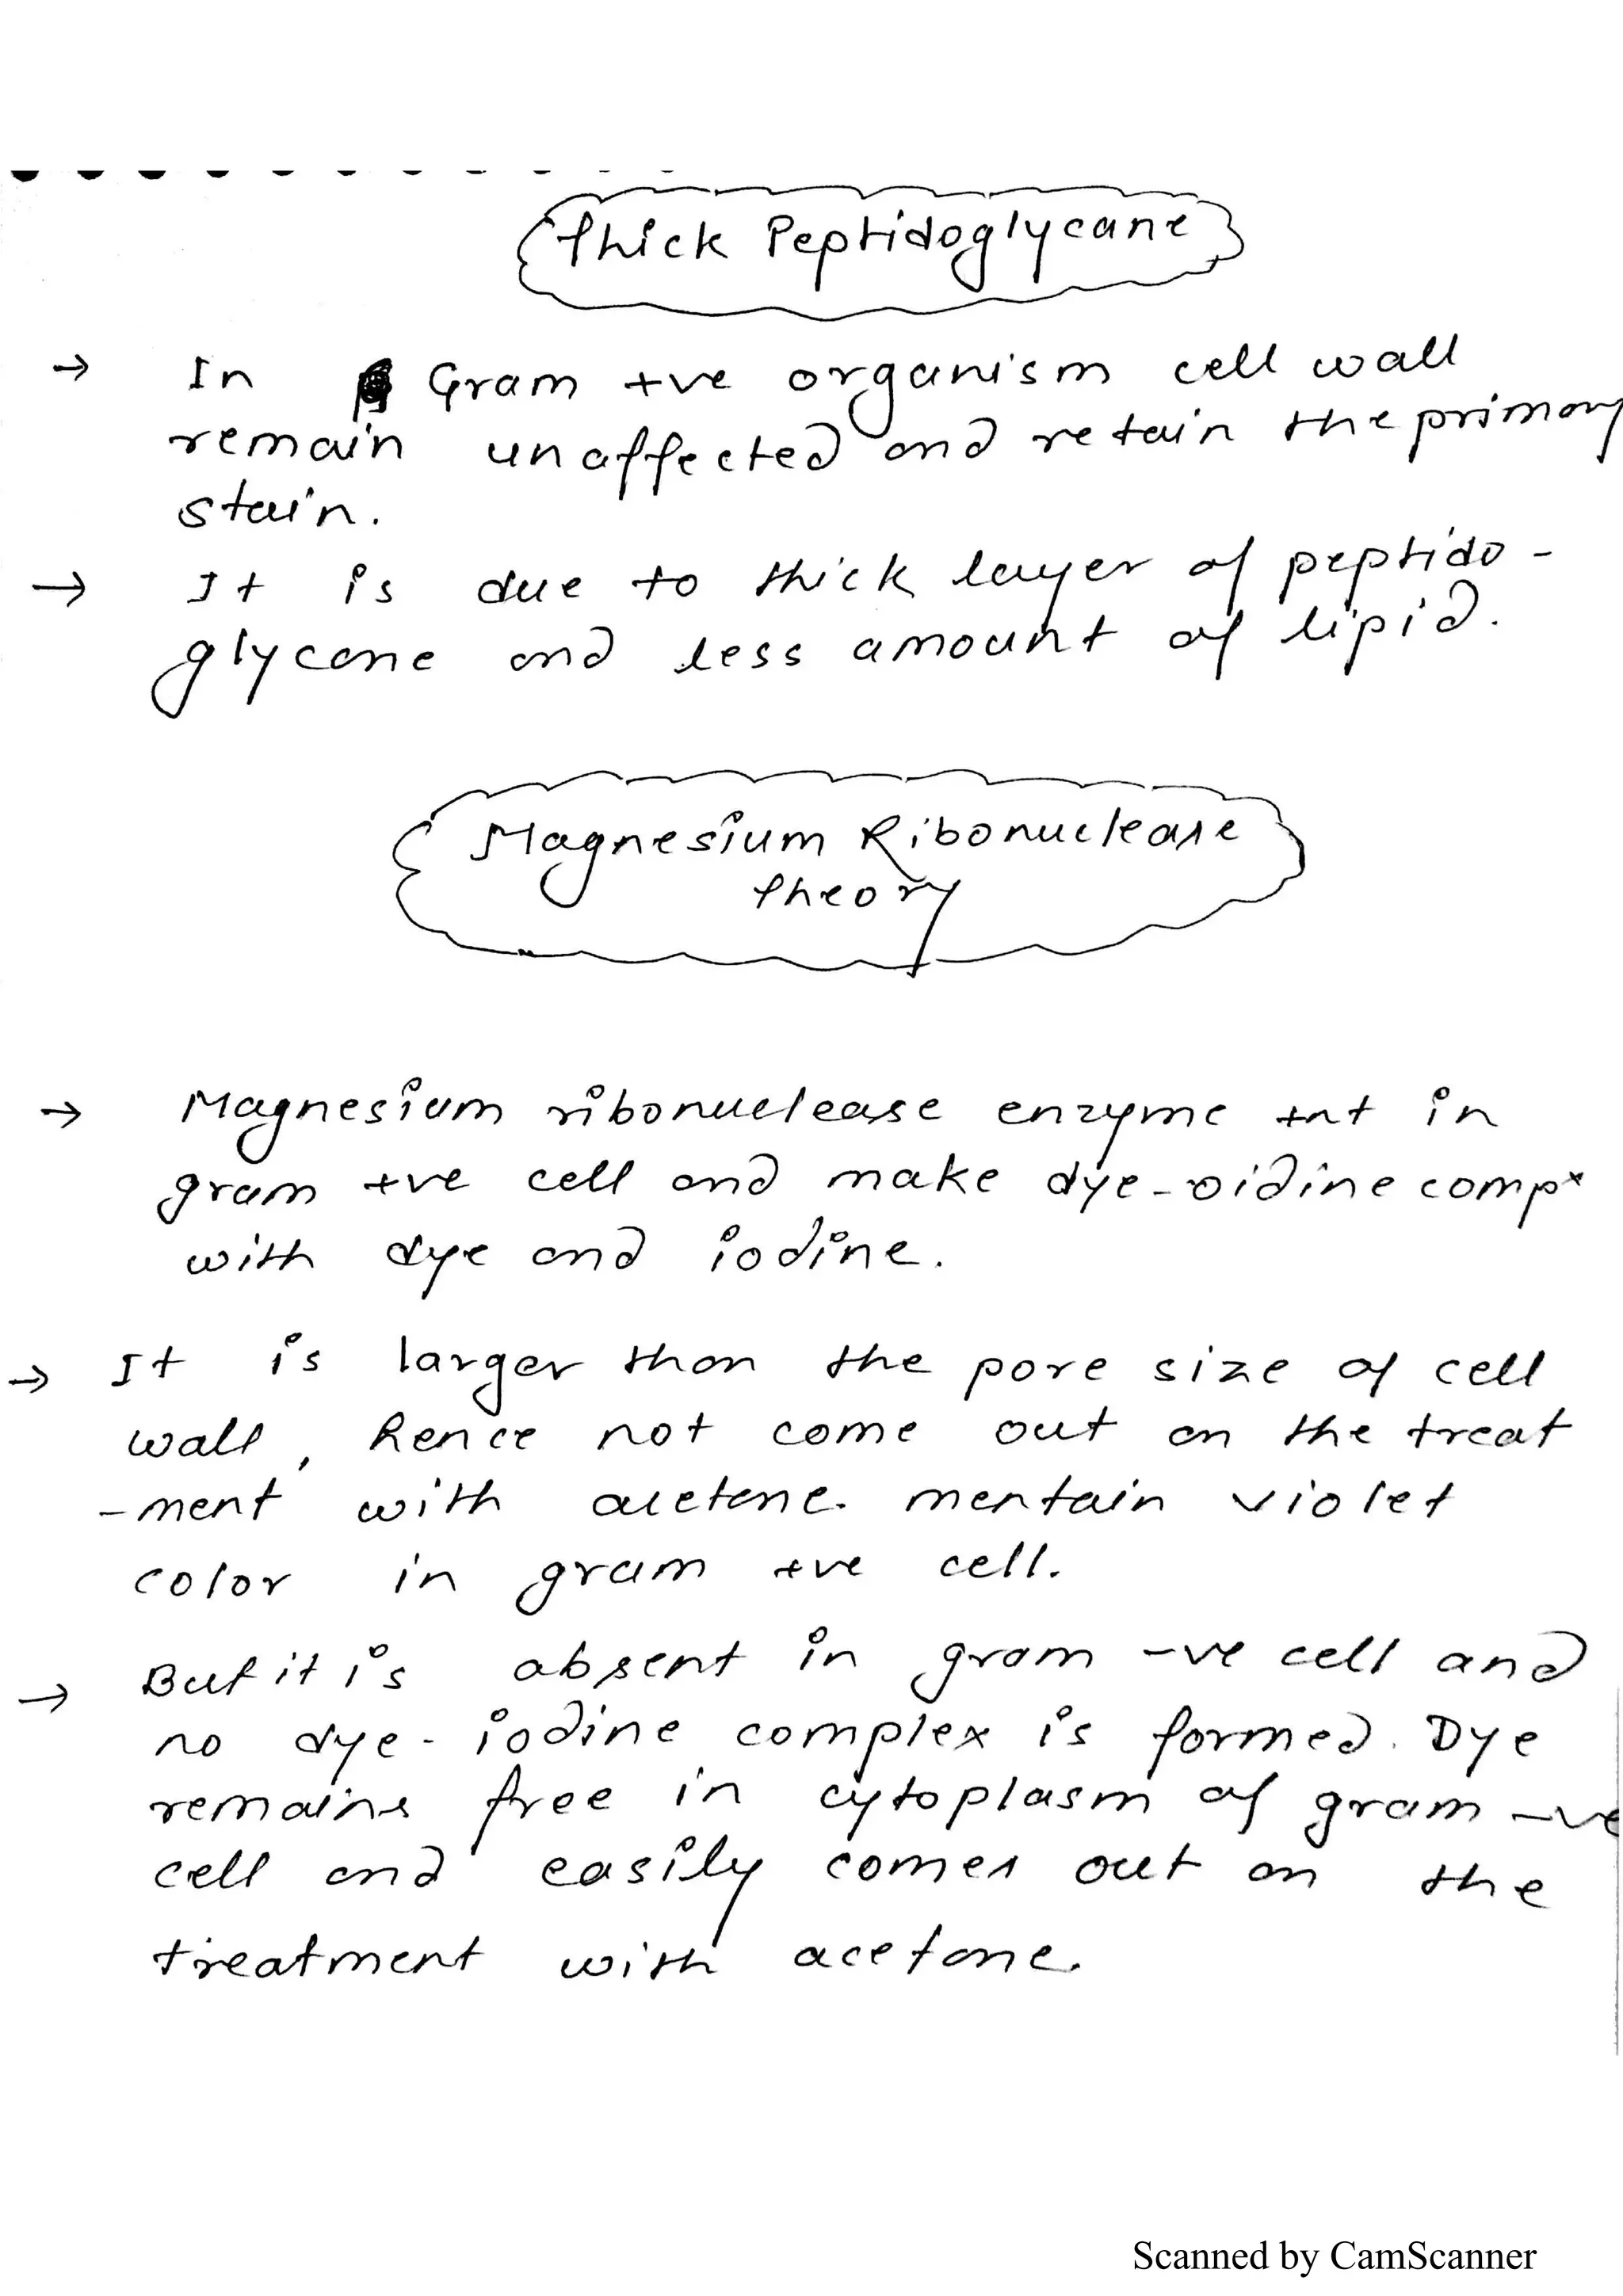 Thick Peptidoglycane
→ In Gram +ve organism cell wall
remain unaffected and retain the primary
stain.
→ It is due to thick layer of peptido-
glycane and less amount of lipid.
Magnesium Ribonuclease
Theory
→ Magnesium ribonuclease enzyme +nt in
gram +ve cell and make dye-oidine compx
with dye and iodine.
→ It is larger than the pore size of cell
wall, hence not come out on the treat
-ment with acetone. mentain violet
color in gram +ve cell.
→ But it is absent in gram -ve cell and
no dye-iodine complex is formed. Dye
remains free in cytoplasm of gram -ve
cell and easily comes out on the
treatment with acetone.
Scanned by CamScanner